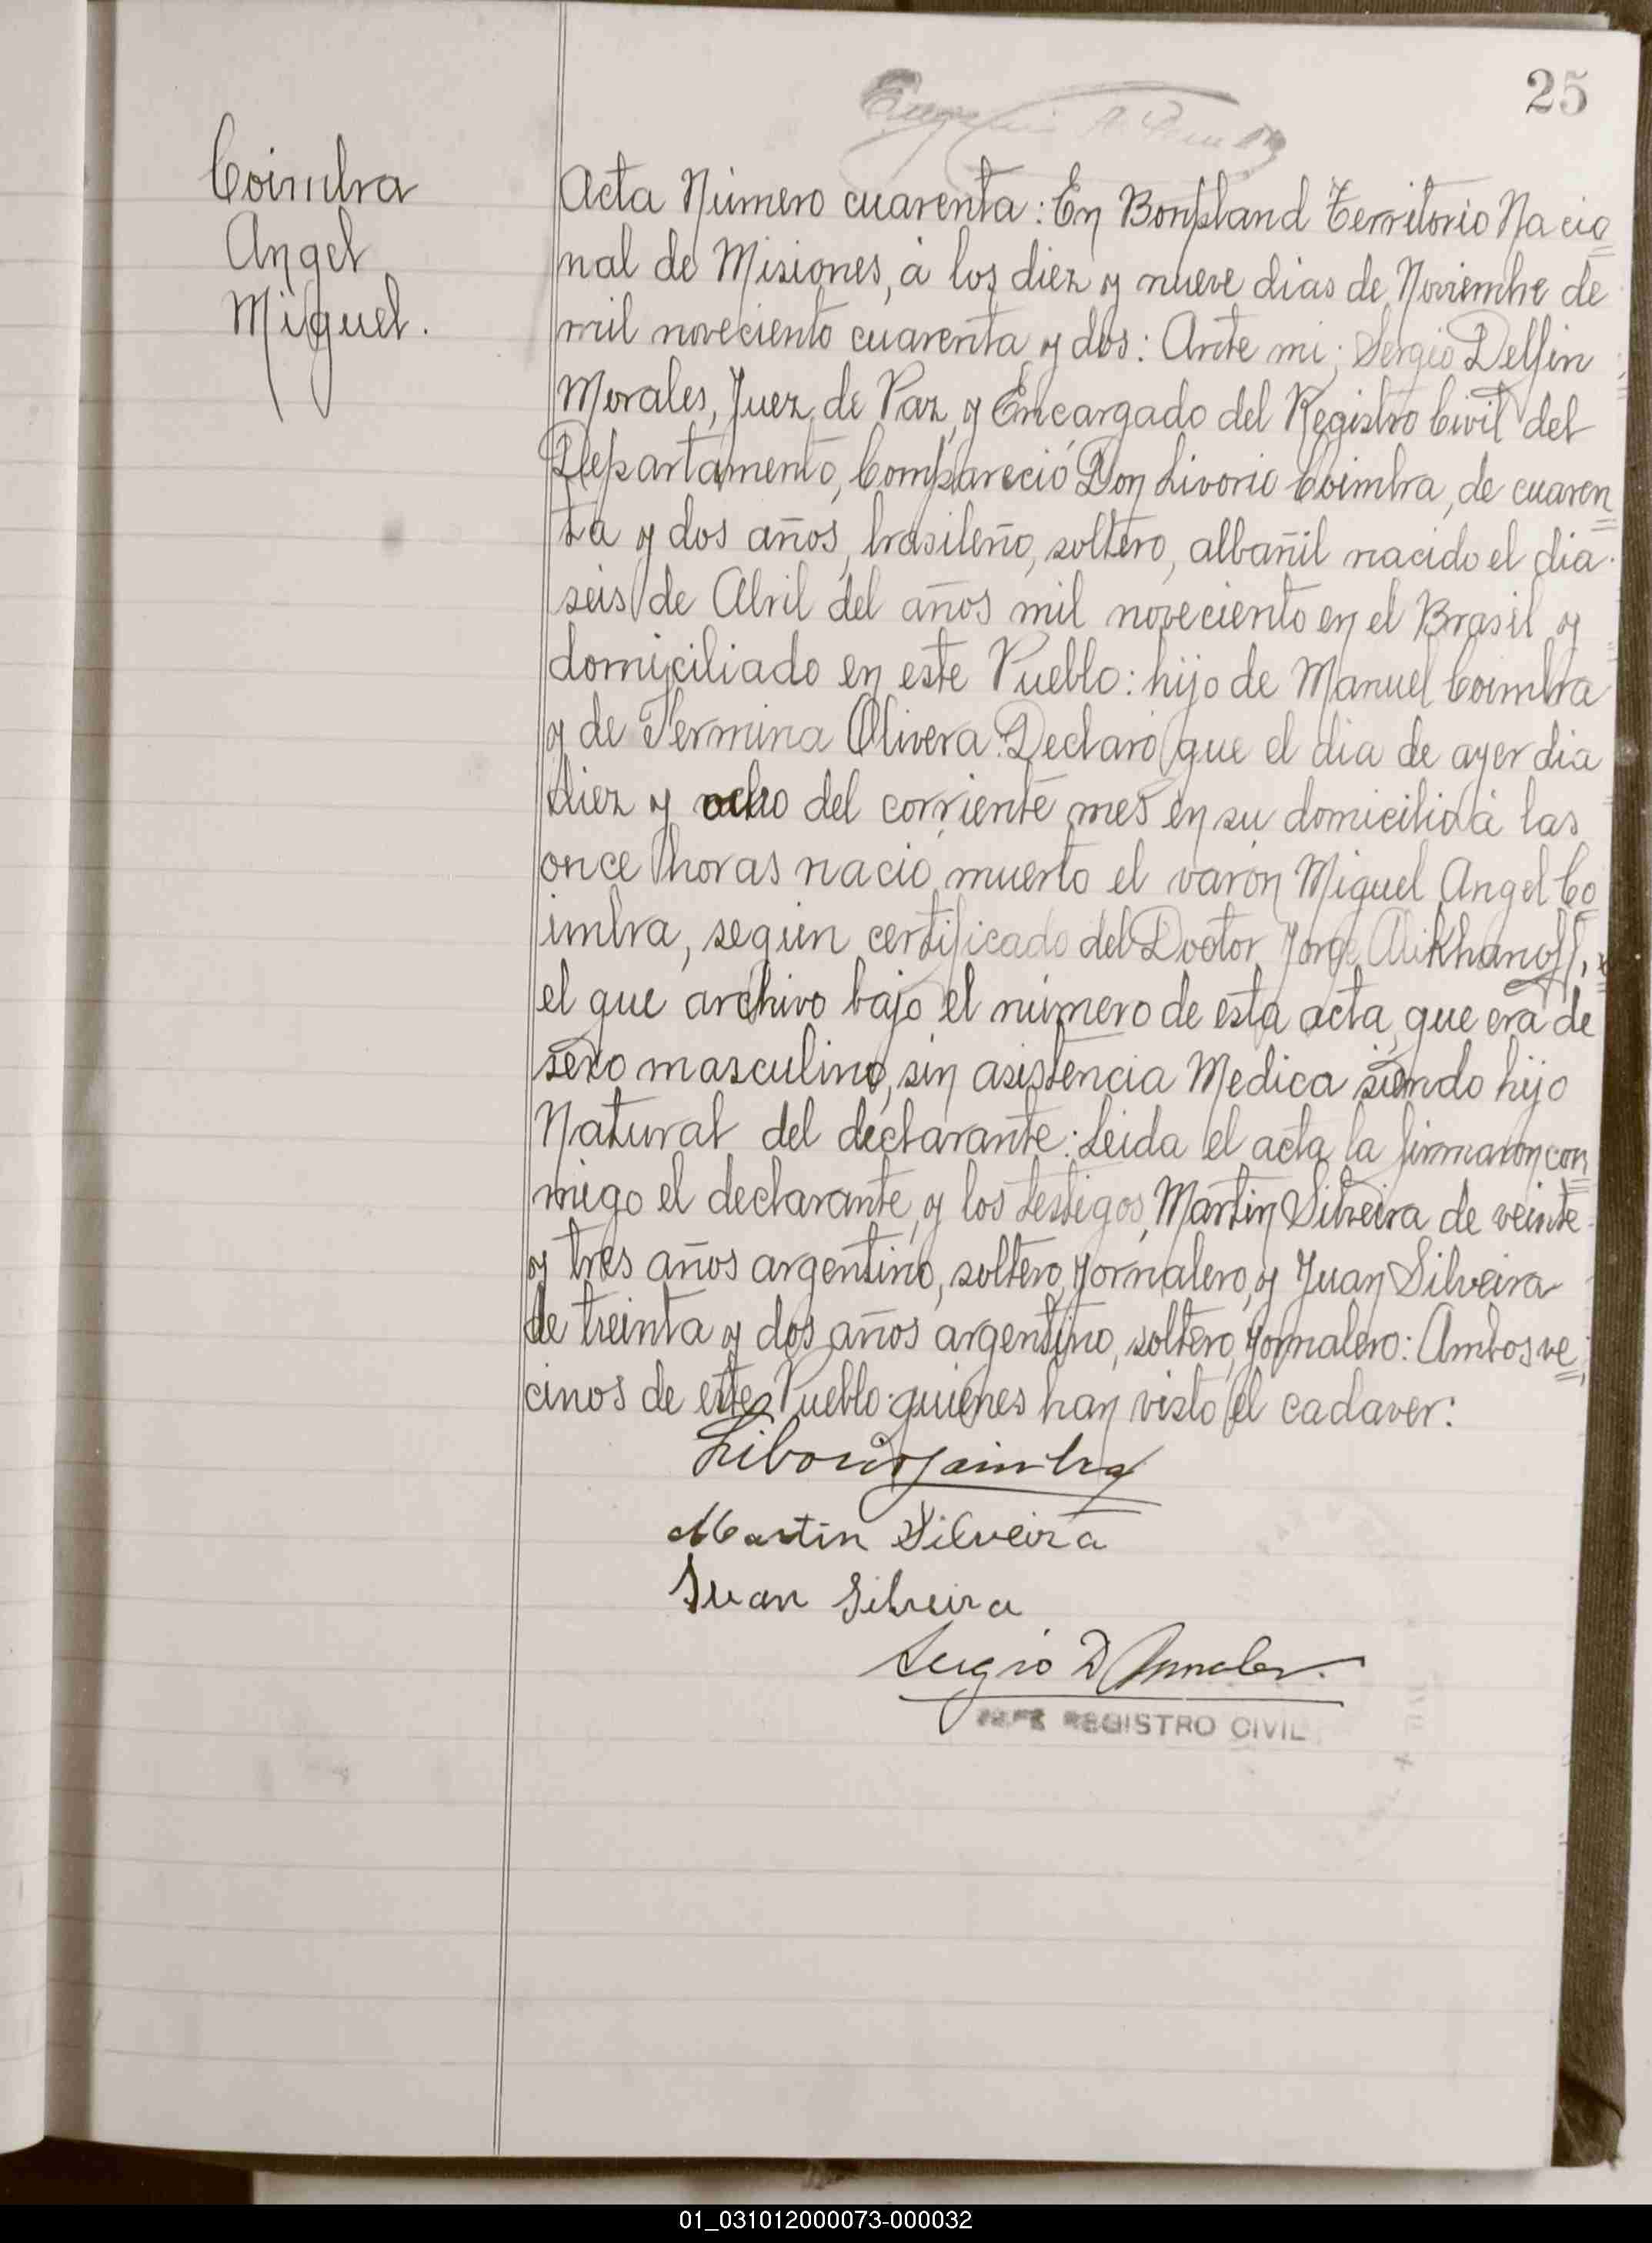 25
Coimbra
Angel
Miguel.
Acta Número cuarenta: En Bonpland Territorio Nacio
nal de Misiones, á los diez y nueve dias de Noviembre de
mil noveciento cuarenta y dos: Ante mi; Sergio Delfin
Morales, Juez de Paz, y Encargado del Registro Civil del
Departamento, Compareció Don Livorio Coimbra, de cuaren
ta y dos años, brasileño, soltero, albañil nacido el dia
seis de Abril del años mil noveciento en el Brasil y
domiciliado en este Pueblo: hijo de Manuel Coimbra
y de Fermina Olivera. Declaró que el dia de ayer dia
diez y ocho del corriente mes en su domicilio á las
once horas nació muerto el varón Miguel Angel Co
imbra, según certificado del Doctor Jorge Alikhanoff,
el que archivo bajo el número de esta acta, que era de
sexo masculino, sin asistencia Medica siendo hijo
Natural del declarante: Leida el acta la firmaron con
migo el declarante, y los testigos, Martin Silveira de veinte
y tres años argentino, soltero, Jornalero, y Juan Silveira
de treinta y dos años argentino, soltero, Jornalero: Ambos ve
cinos de este Pueblo quienes han visto el cadaver:
Liborio Coimbra
Martin Silveira
Juan Silveira
Sergio D Morales.
JEFE REGISTRO CIVIL
01_031012000073-000032